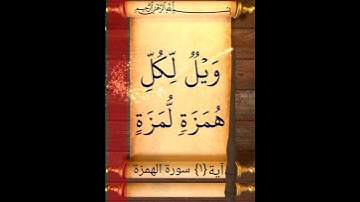 بسم الله الرحمن الرحيم
وَيْلٌ لِّكُلِّ
هُمَزَةٍ لُّمَزَةٍ
آية {١} سورة الهمزة